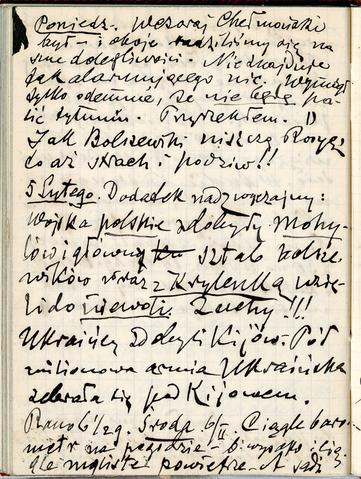 Poniedz. Wczoraj Chełmoński
był – i oboje radziliśmy się na
swe dolegliwości. Nie znajduje
jak alarmującego nic. Wymógł
tylko odemnie, że nie będę pa-
lić tytoniu. Przyrzekłem. !)
Jak Bolszewiki niszczą Rosyę,
to aż strach i podziw!!
5 Lutego. Dodatek nadzwyczajny:
Wojska polskie zdobyły Mohy-
lów i główny sztab bolsze
wików wraz z Krylenką wzię-
li do niewoli. Zuchy!!!
Ukraińcy zdobyli Kijów. Pół
milionowa armia Ukraińska
zebrała się pod Kijowem.
Rano 6½ g. Środa 6/II. Ciągle baro-
metr na pogodzie – b. wysoko i cią-
gle mgliste powietrze – A sadź